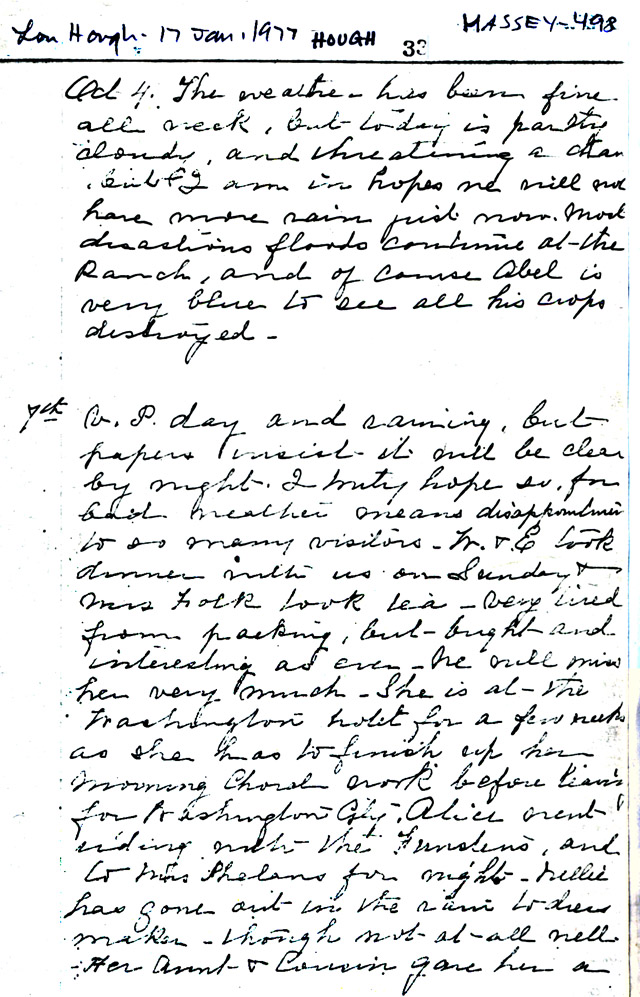 Lon Hough - 17 Jan. 1977 HOUGH 33 MASSEY-498
Oct 4. The weather has been fine
all week, but today is partly
cloudy, and threatening a
but I am in hopes we will not
have more rain just now. Most
disastrous floods continue at the
Ranch, and of course Abel is
very blue to see all his crops
destroyed -
7th V. P. day and raining, but
papers insist it will be clear
by night. I truly hope so, for
bad weather means disappointment
to so many visitors - W. & E took
dinner with us on Sunday &
Mrs Folk took tea - very tired
from packing, but bright and
interesting as ever - We will miss
her very much - She is at the
Washington hotel for a few weeks
as she has to finish up her
Morning Choral work before leaving
for Washington City. Alice went
riding with the Funstens, and
to Mrs Phelans for night - Nellie
has gone out in the rain to dress
maker - though not at all well
- Her Aunt & Cousin gave her a